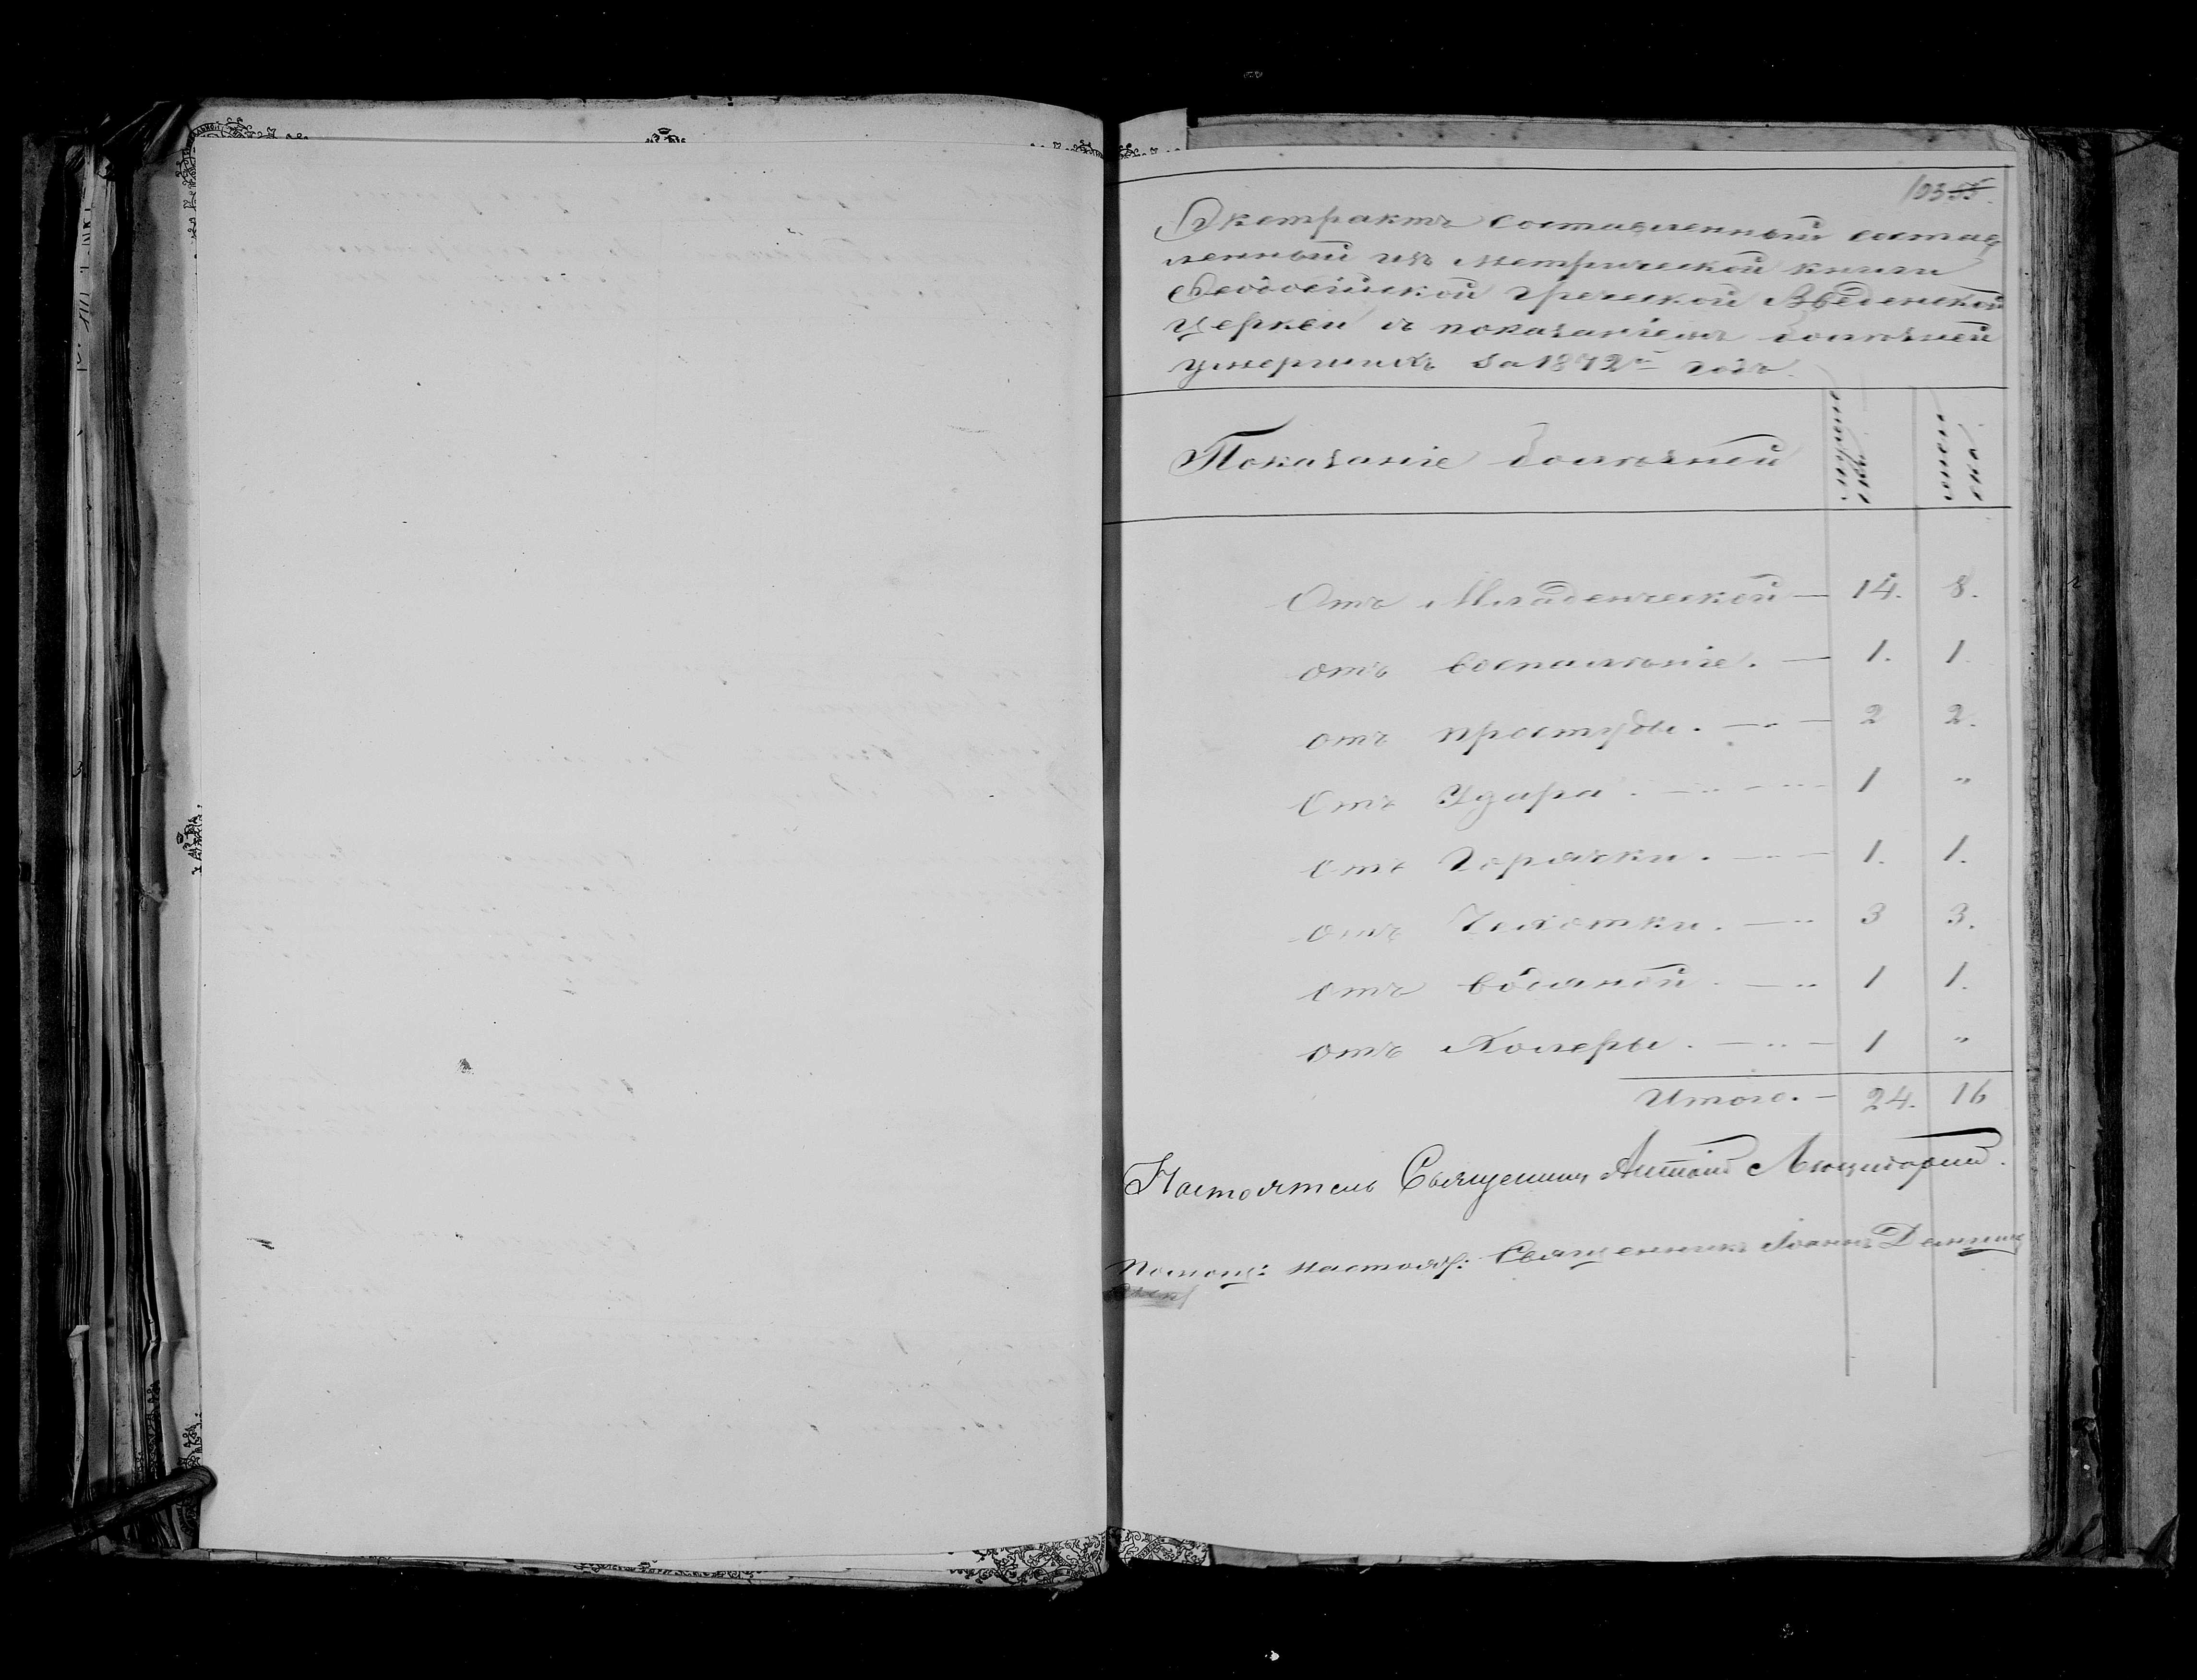 103 55.
Экстрактъ составленный состав
ленный изъ метрической книги
Ѳеодосійской Греческой Введенской
Церкви съ показаніемъ болѣзней
умершихъ за 1872й годъ.
Показаніе болѣзней
мужеска
женска
Отъ Младенческой — 14. 8.
отъ воспалѣніе. — 1. 1.
отъ простуды. — 2 2.
Отъ Удара. — 1 "
отъ Горячки. — 1. 1.
отъ Чахотки. — 3 3.
отъ водяной. — 1 1.
отъ Холеры. — 1 "
Итого. — 24. 16
Настоятель Священникъ Антоній
Помощ: настоят: Священникъ Іоаннъ